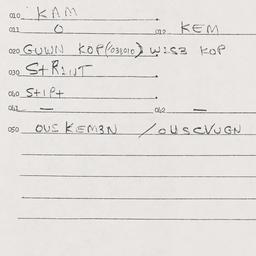 010 KAM
011 O 012 KEM
020 GUWN KOP(031010) WIS3 KOP
030 StRIUT
040 StIPt
041 — 042 —
050 OUSKEM3N / OUSCVUGN